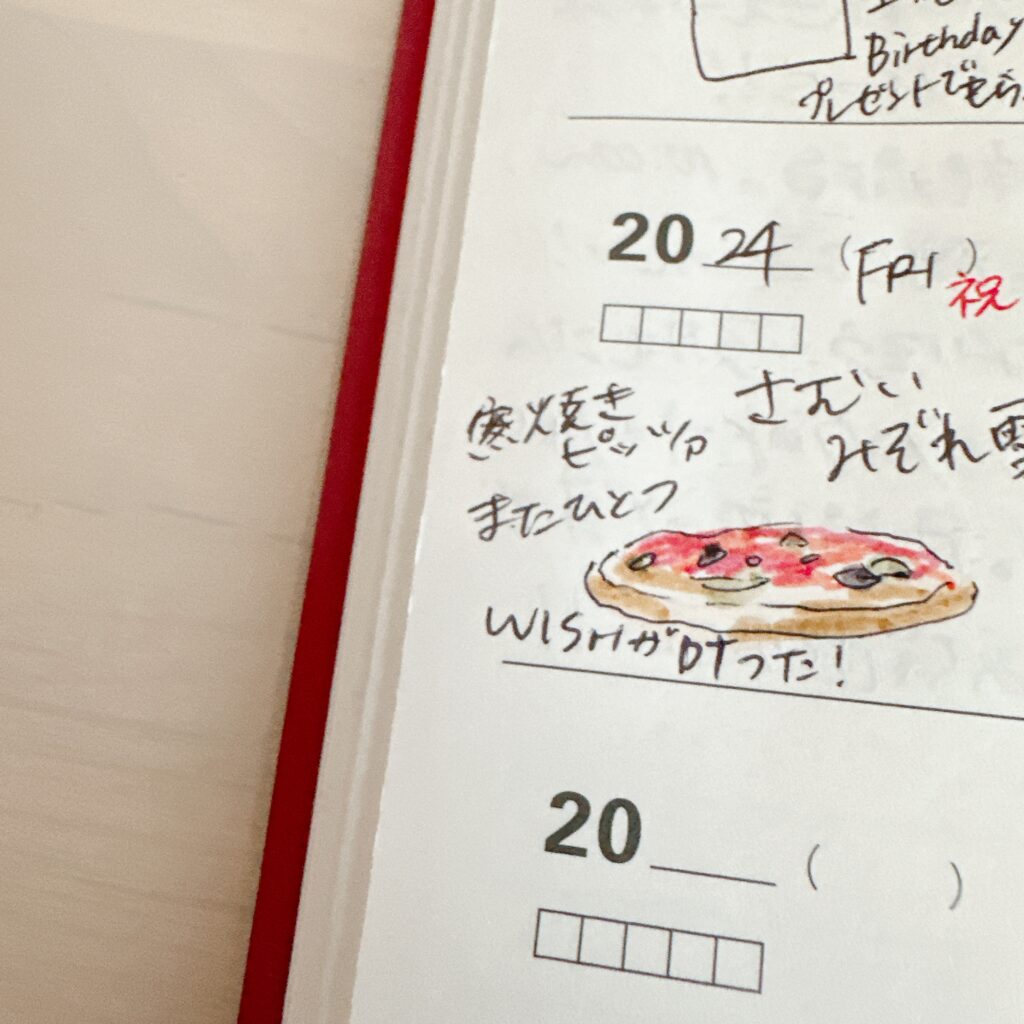 Birthday
プレゼントでもら
2024 (FRI)
祝
さむい
みぞれ雪
窯焼き
ピッツァ
またひとつ
WISHが叶った!
20 ( )